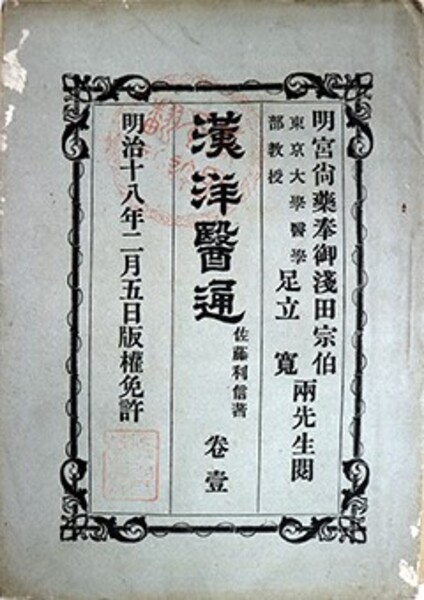 明宮尙藥奉御淺田宗伯
東京大學醫學
部教授
足立寬
兩先生閱
漢洋醫通
佐藤利信著
卷壹
明治十八年二月五日版權免許